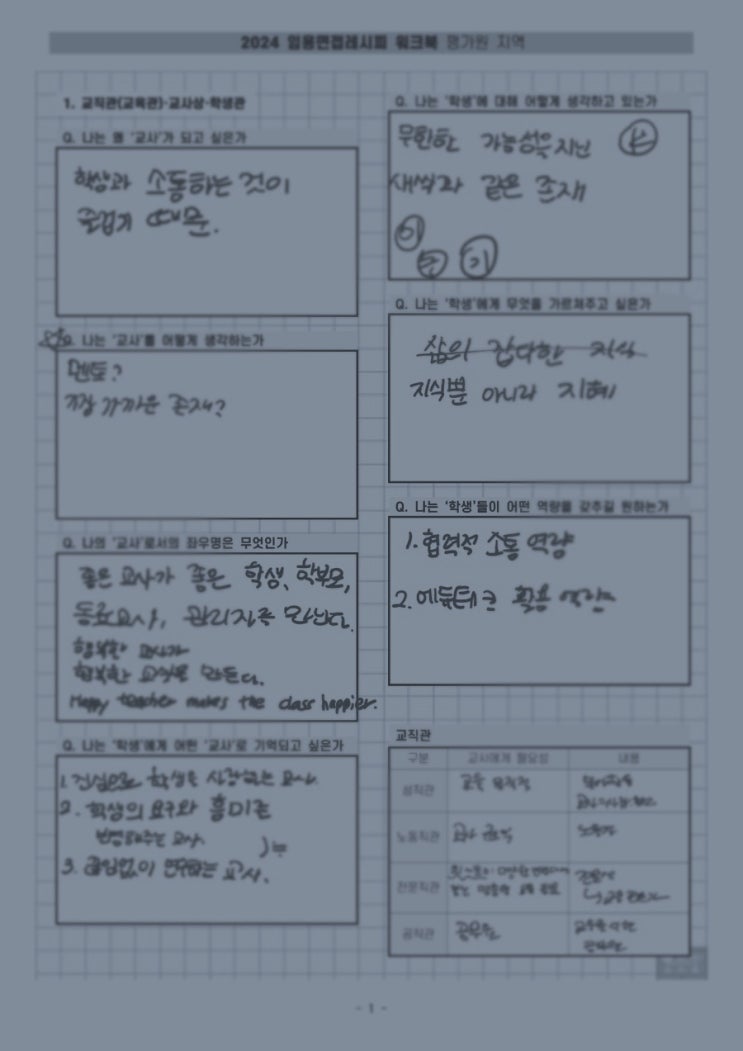 2024 임용면접레시피 워크북 평가원 지역
1. 교직관(교육관)·교사상·학생관
Q. 나는 왜 '교사'가 되고 싶은가
학생과 소통하는 것이
즐겁기 때문.
Q. 나는 '교사'를 어떻게 생각하는가
멘토?
가까운 존재?
Q. 나의 '교사'로서의 좌우명은 무엇인가
좋은 교사가 좋은 학생, 학부모,
동료교사, 관리자를 만난다.
행복한 교사가
행복한 교실을 만든다.
Happy teacher makes the class happier.
Q. 나는 '학생'에게 어떤 '교사'로 기억되고 싶은가
1. 진심으로 학생을 사랑하는 교사.
2. 학생의 요구와 흥미를
반영해주는 교사.
3. 끊임없이 연구하는 교사.
Q. 나는 '학생'에 대해 어떻게 생각하고 있는가
무한한 가능성을 지닌
새싹과 같은 존재
Q. 나는 '학생'에게 무엇을 가르쳐주고 싶은가
삶의 잡다한 지식
지식뿐 아니라 지혜
Q. 나는 '학생'들이 어떤 역량을 갖추길 원하는가
1. 협력적 소통 역량
2. 에듀테크 활용 역량
교직관
구분 교사에게 필요성 내용
성직관
노동직관
전문직관
공직관 공무원
- 1 -